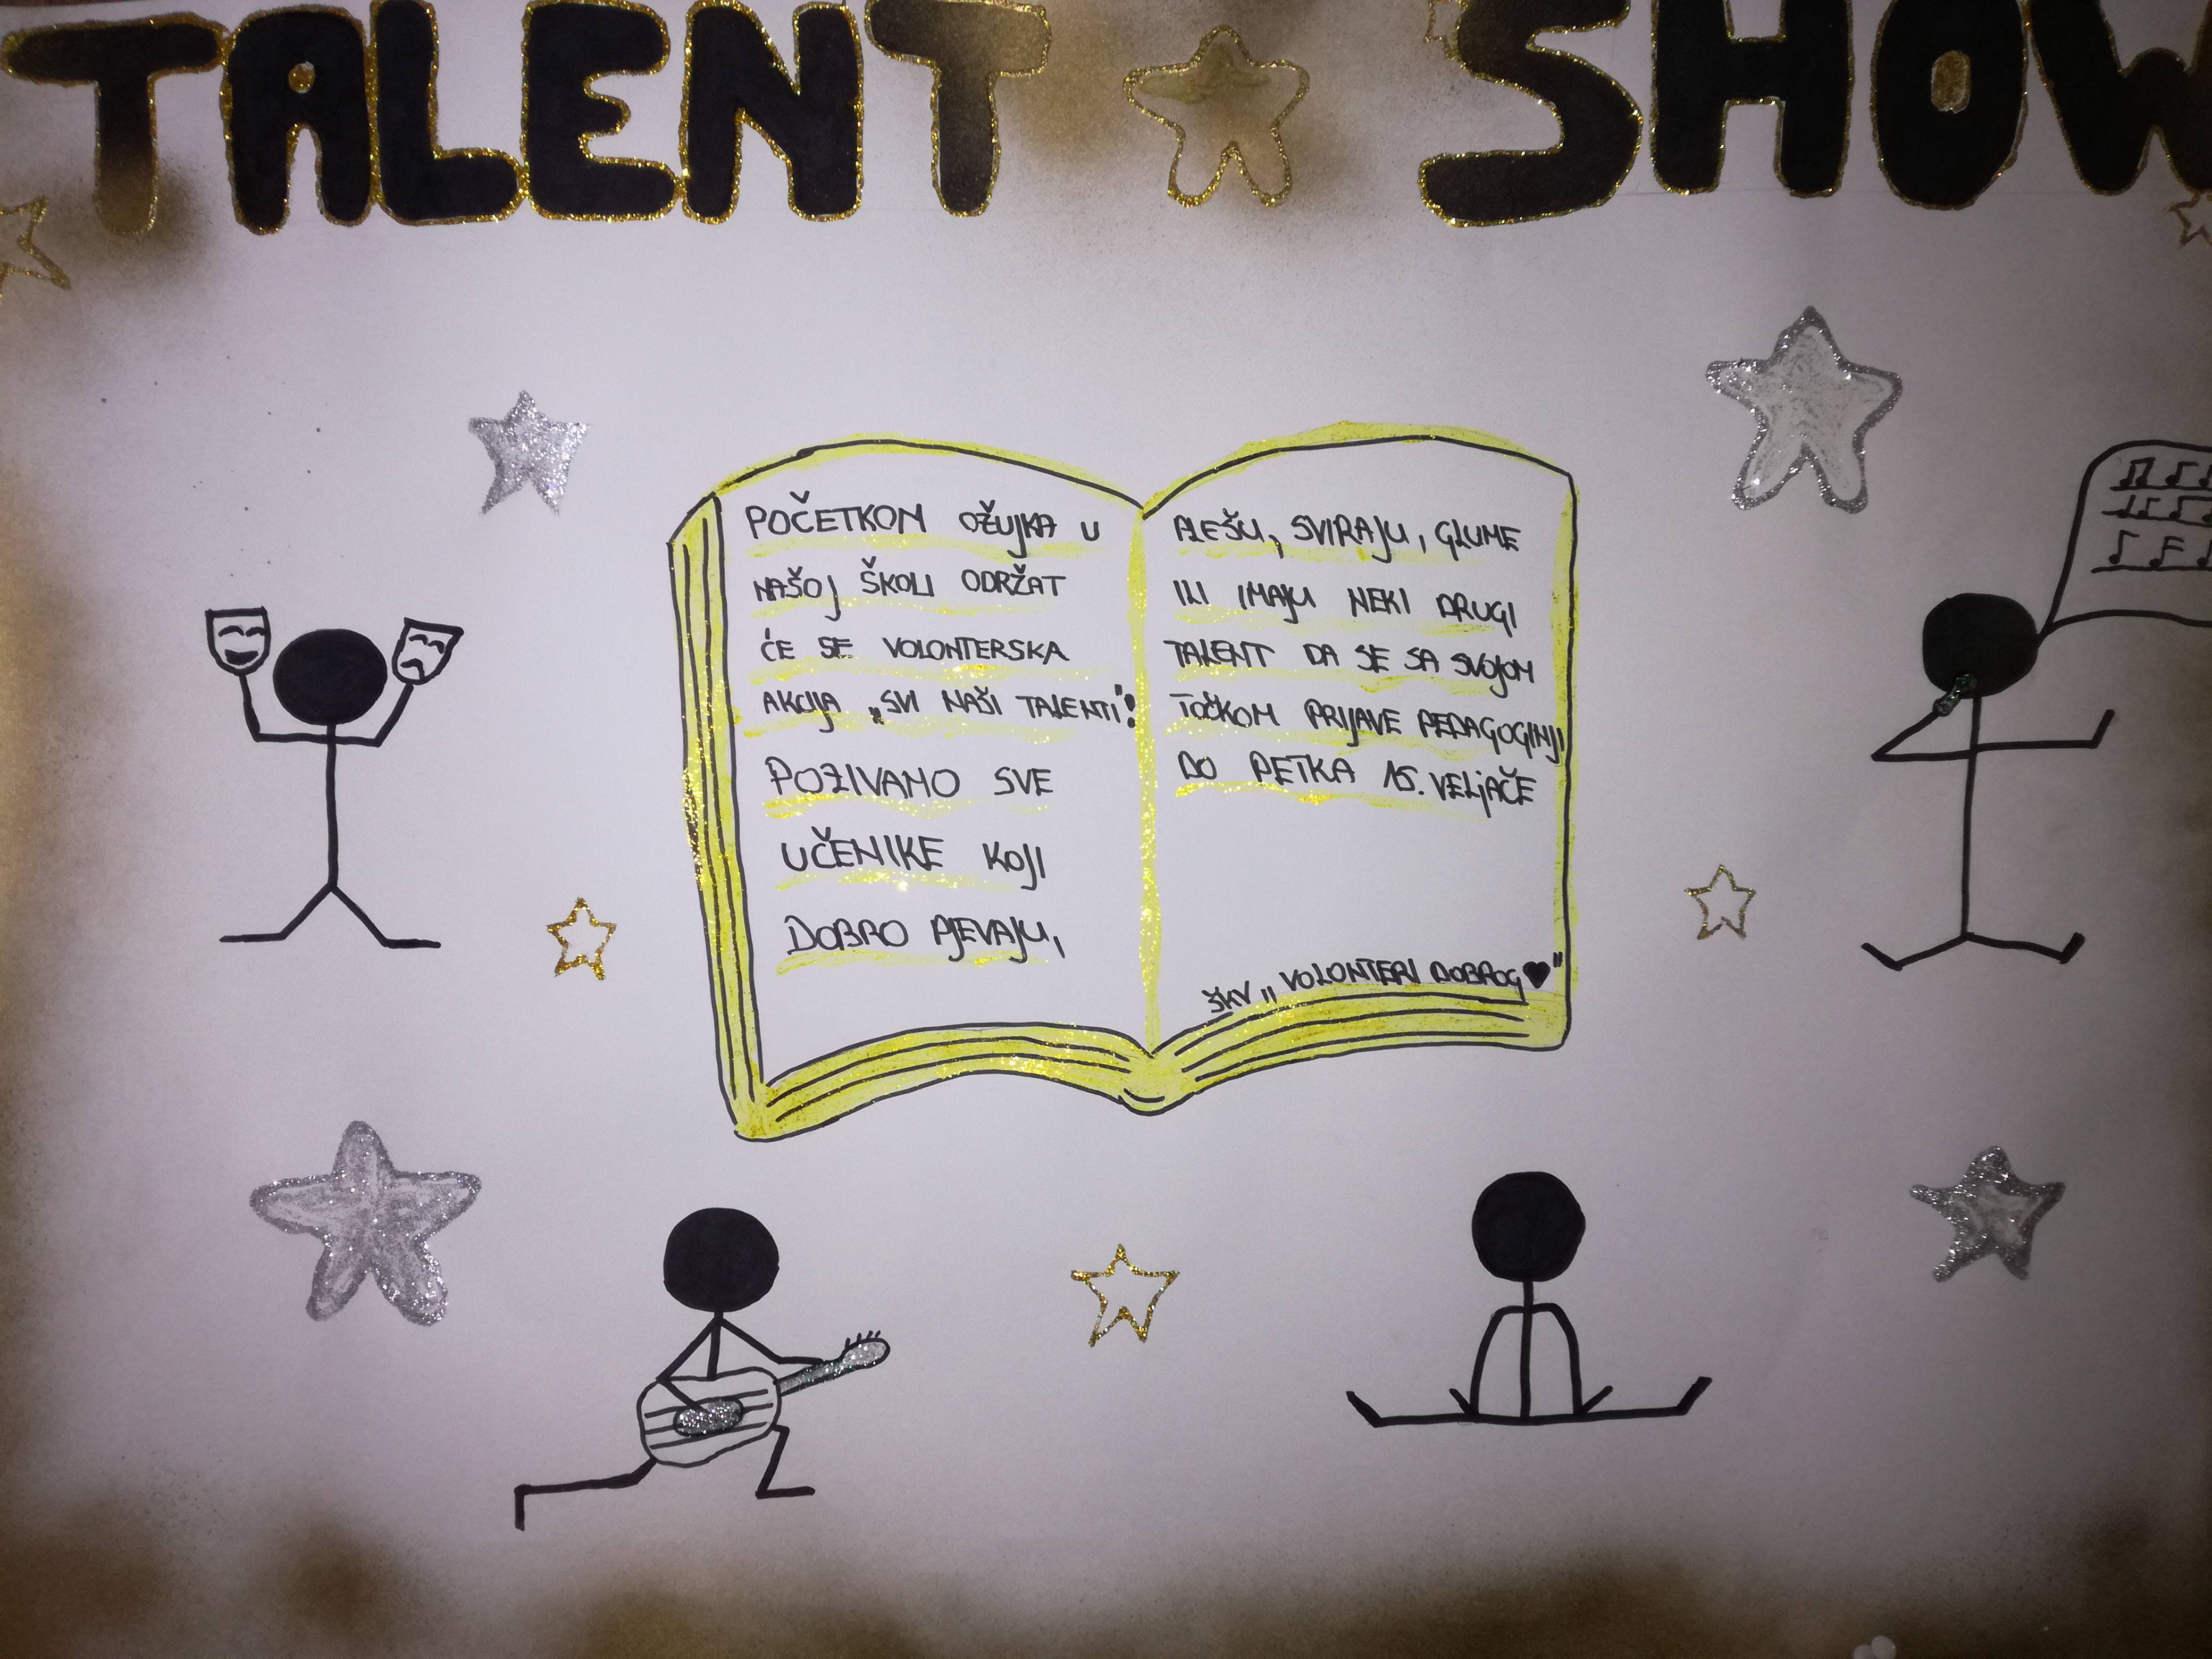 TALENT SHOW
POČETKOM OŽUJKA U
NAŠOJ ŠKOLI ODRŽAT
ĆE SE VOLONTERSKA
AKCIJA „SVI NAŠI TALENTI"!
POZIVAMO SVE
UČENIKE KOJI
DOBRO PJEVAJU,
PLEŠU, SVIRAJU, GLUME
ILI IMAJU NEKI DRUGI
TALENT DA SE SA SVOJOM
TOČKOM PRIJAVE PEDAGOGINJI
DO PETKA 15. VELJAČE
ŠKV „VOLONTERI DOBROG ♥"